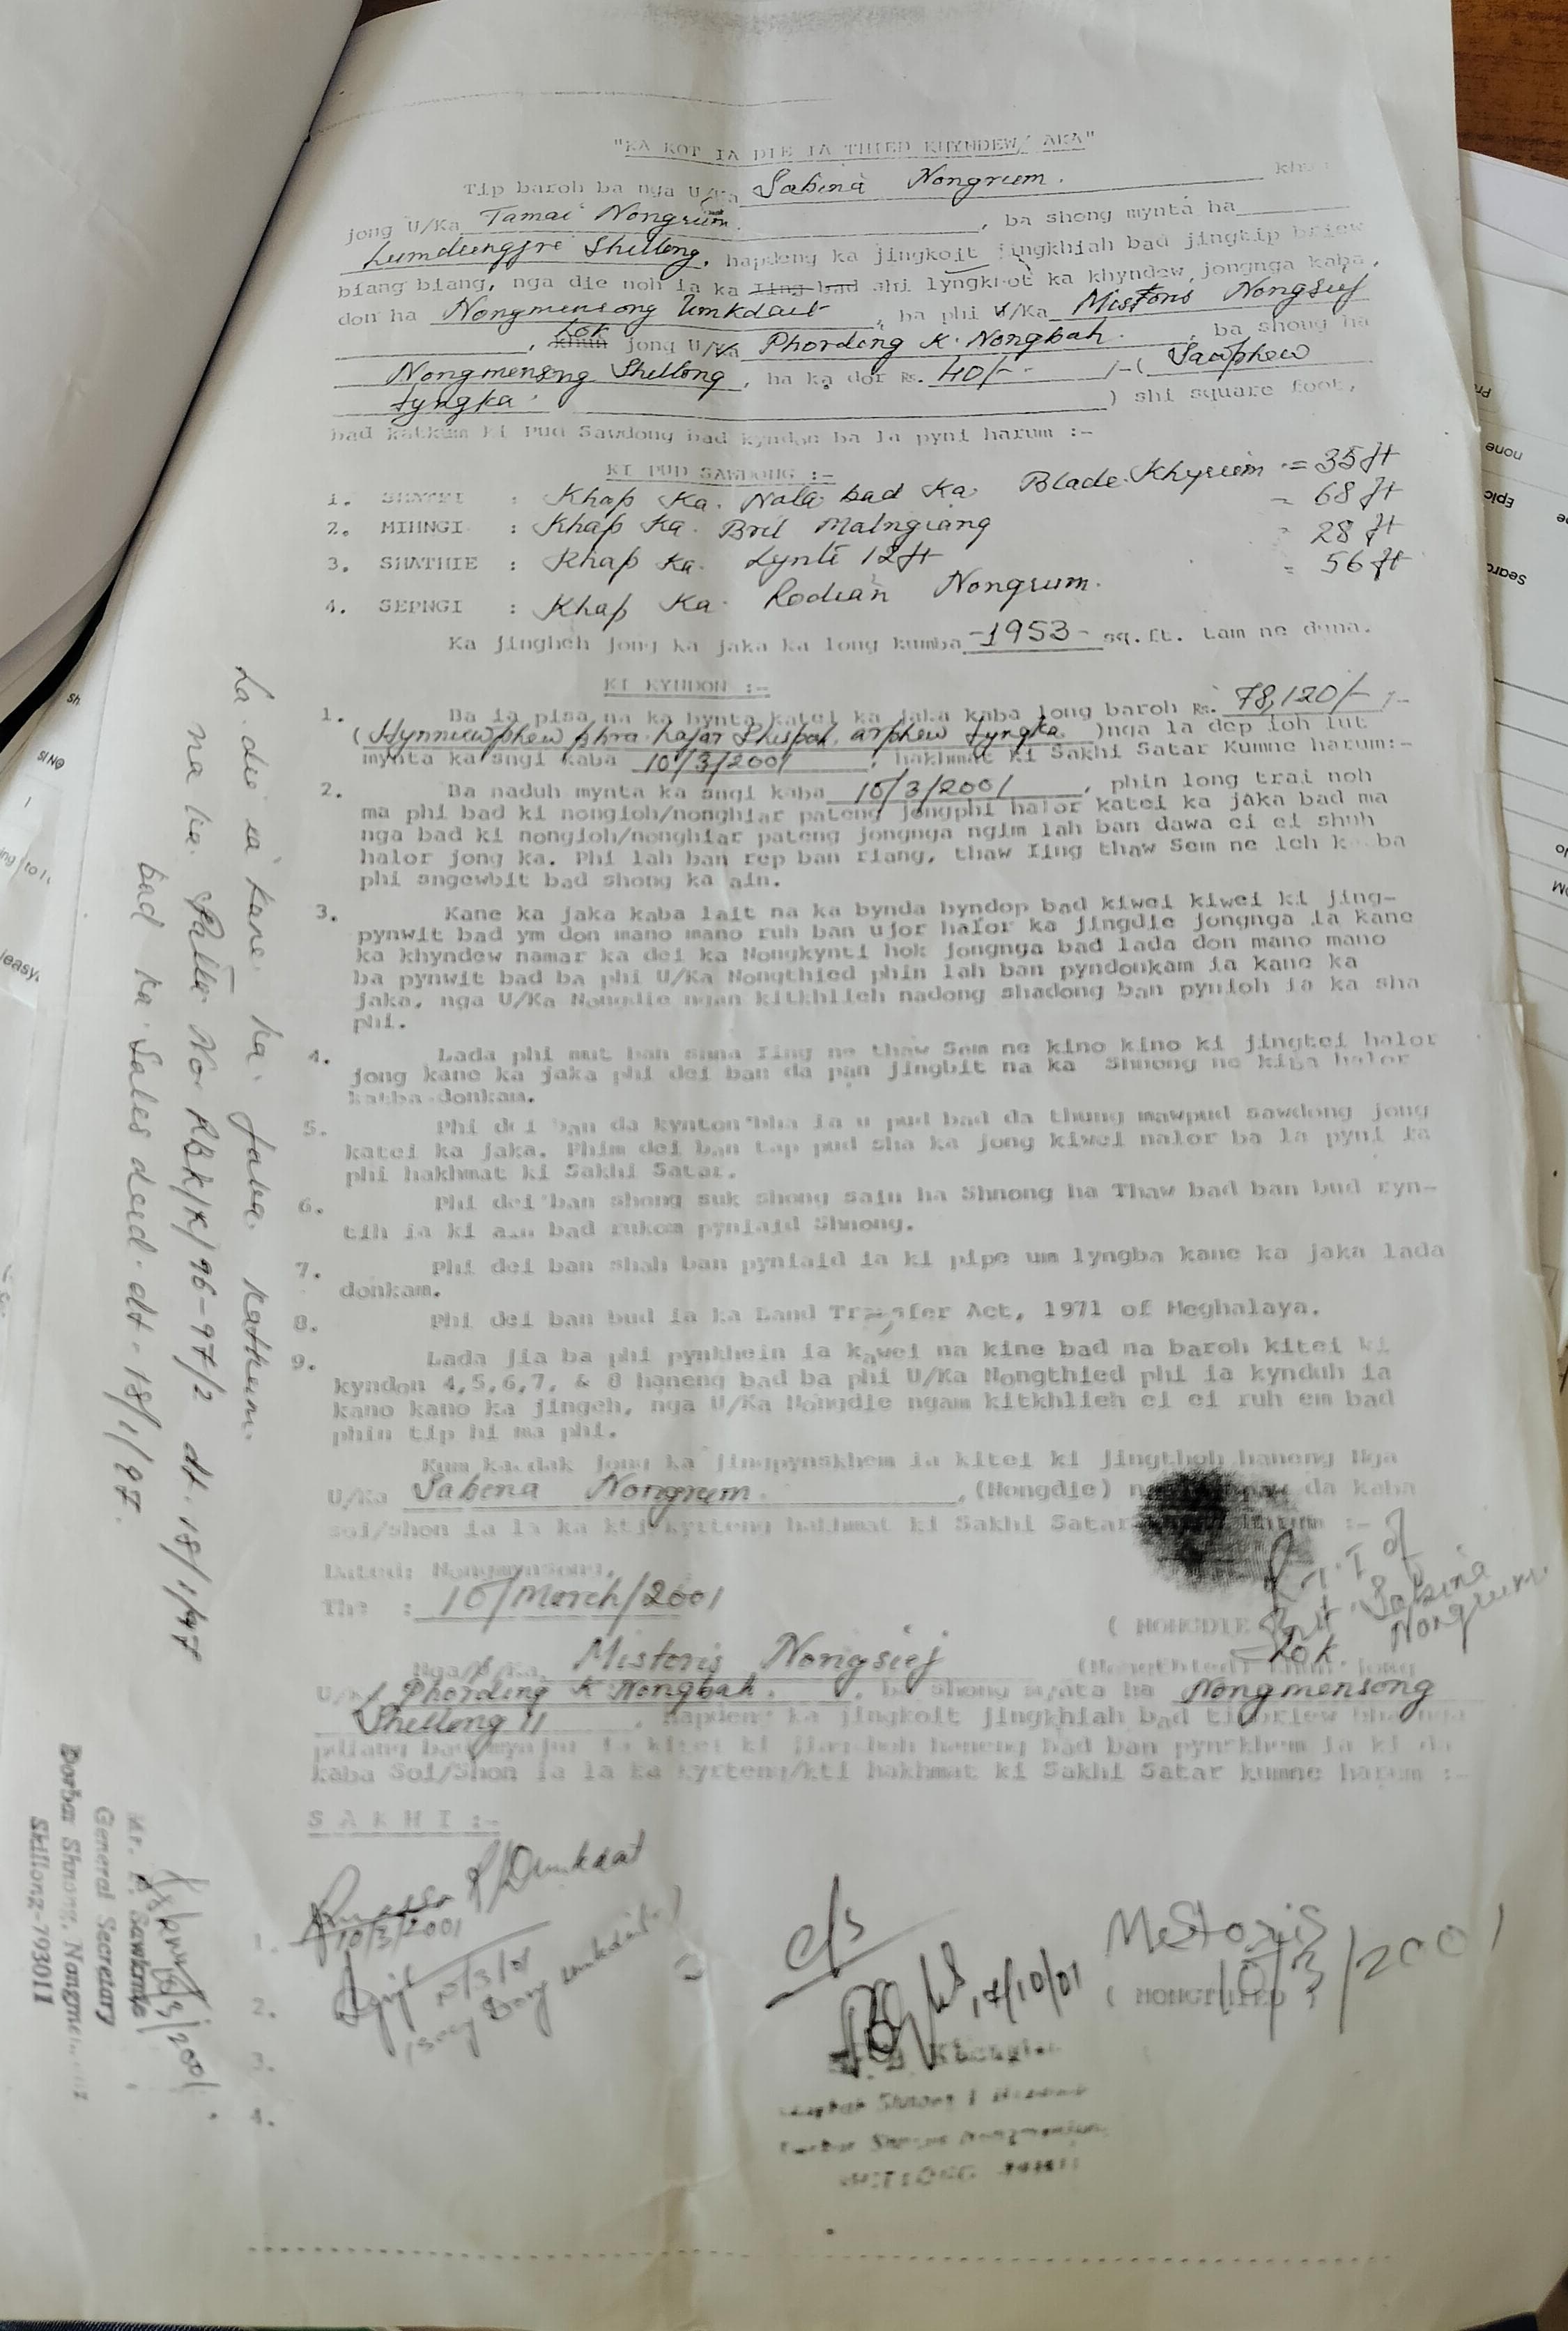 "KA KOT IA DIE IA THIED KHYNDEW/ AKA"
Tip baroh ba nga U/Ka Sabina Nongrum.
jong U/Ka Tamai Nongrum, ba shong mynta ha
Lumdiengjri Shillong, hapdeng ka jingkoit jingkhiah bad jingtip briew
biang biang, nga die noh ia ka Iing bad shi lyngkhot ka khyndew jongnga kaba
don ha Nongmensong Umkdait, ba phi U/Ka Mistoris Nongsiej
, khun Lok jong U/Ka Phording K. Nongbah, ba shong ha
Nongmensng Shillong, ha ka dor Rs. 40/- /-( Sawphew
tyngka. ) shi square foot,
bad katkum ki Pud Sawdong bad kyndon ba la pyni harum :-
KI PUD SAWDONG :-
1. SHATEI : Khap Ka. Nala bad Ka Blade Khyriem = 35 ft
2. MIHNGI : Khap Ka. Bril Malngiang = 68 ft
3. SHATHIE : Khap Ka. Lynti 12 ft 28 ft
4. SEPNGI : Khap Ka. Rodian Nongrum. = 56 ft
Ka jingheh jong ka jaka ka long kumba -1953- sq.ft. tam ne duna.
KI KYNDON :-
1. Ba ia pisa na ka bynta katei ka jaka kaba long baroh Rs. 78,120/- /-
(Hynniewphew phra hajar Shispah arphew tyngka )nga la dep ioh lut
mynta ka sngi kaba 10/3/2001, hakhmat ki Sakhi Satar Kumne harum:-
2. Ba naduh mynta ka sngi kaba 10/3/2001, phin long trai noh
ma phi bad ki nongioh/nonghiar pateng jongphi halor katei ka jaka bad ma
nga bad ki nongioh/nonghiar pateng jongnga ngim lah ban dawa ei ei shuh
halor jong ka. Phi lah ban rep ban riang, thaw Iing thaw Sem ne leh ba
phi sngewbit bad shong ka ain.
3. Kane ka jaka kaba lait na ka bynda byndop bad kiwei kiwei ki jing-
pynwit bad ym don mano mano ruh ban ujor halor ka jingdie jongnga ia kane
ka khyndew namar ka dei ka Nongkynti hok jongnga bad lada don mano mano
ba pynwit bad ba phi U/Ka Nongthied phin lah ban pyndonkam ia kane ka
jaka, nga U/Ka Nongdie ngan kitkhlieh nadong shadong ban pynioh ia ka sha
phi.
4. Lada phi mut ban shna Iing ne thaw Sem ne kino kino ki jingtei halor
jong kane ka jaka phi dei ban da pan jingbit na ka Shnong ne kiba halor
katba donkam.
5. Phi dei ban da kynton bha ia u pud bad da thung mawpud sawdong jong
katei ka jaka. Phim dei ban tap pud sha ka jong kiwei nalor ba la pyni ia
phi hakhmat ki Sakhi Satar.
6. Phi dei ban shong suk shong sain ha Shnong ha Thaw bad ban bud ryn-
tih ia ki ain bad rukom pyniaid Shnong.
7. Phi dei ban shah ban pyniaid ia ki pipe um lyngba kane ka jaka lada
donkam.
8. Phi dei ban bud ia ka Land Transfer Act, 1971 of Meghalaya.
9. Lada jia ba phi pynkhein ia kawei na kine bad na baroh kitei ki
kyndon 4,5,6,7, & 8 haneng bad ba phi U/Ka Nongthied phi ia kynduh ia
kano kano ka jingeh, nga U/Ka Nongdie ngam kitkhlieh ei ei ruh em bad
phin tip hi ma phi.
Kum ka dak jong ka jingpynskhem ia kitei ki jingthoh haneng Nga
U/Ka Sabina Nongrum. ,(Nongdie) da kaba
soi/shon ia la ka kti/kyrteng hakhmat ki Sakhi Satar :-
Dated: Nongmynsong,
The : 10/March/2001
( NONGDIE
R.T.I of
Smt. Sabina
Nongrum.
Nga/U/Ka, Mistoris Nongsiej (Nongthied) Lok jong
U/K Phording K Nongbah. , ba shong mynta ha Nongmensong
Shillong 11 , hapdeng ka jingkoit jingkhiah bad tipbriew bha nga
pdiang bad mynjur ia kitei ki jingthoh haneng bad ban pynskhem ia ki da
kaba Soi/Shon ia la ka kyrteng/kti hakhmat ki Sakhi Satar kumne harum :-
S A K H I :-
1. 10/3/2001
2. 10/3/01
3.
4.
c/s
17/10/01
Mistoris
10/3/2001
( NONGTHIED )
La die ia kane ka jaka kathum
na ka Patta No. RBK/K/96-97/2 dt. 18/1/97
bad ka Sales deed dt - 18/1/97.
General Secretary
Dorbar Shnong, Nongmensong
Shillong-793011